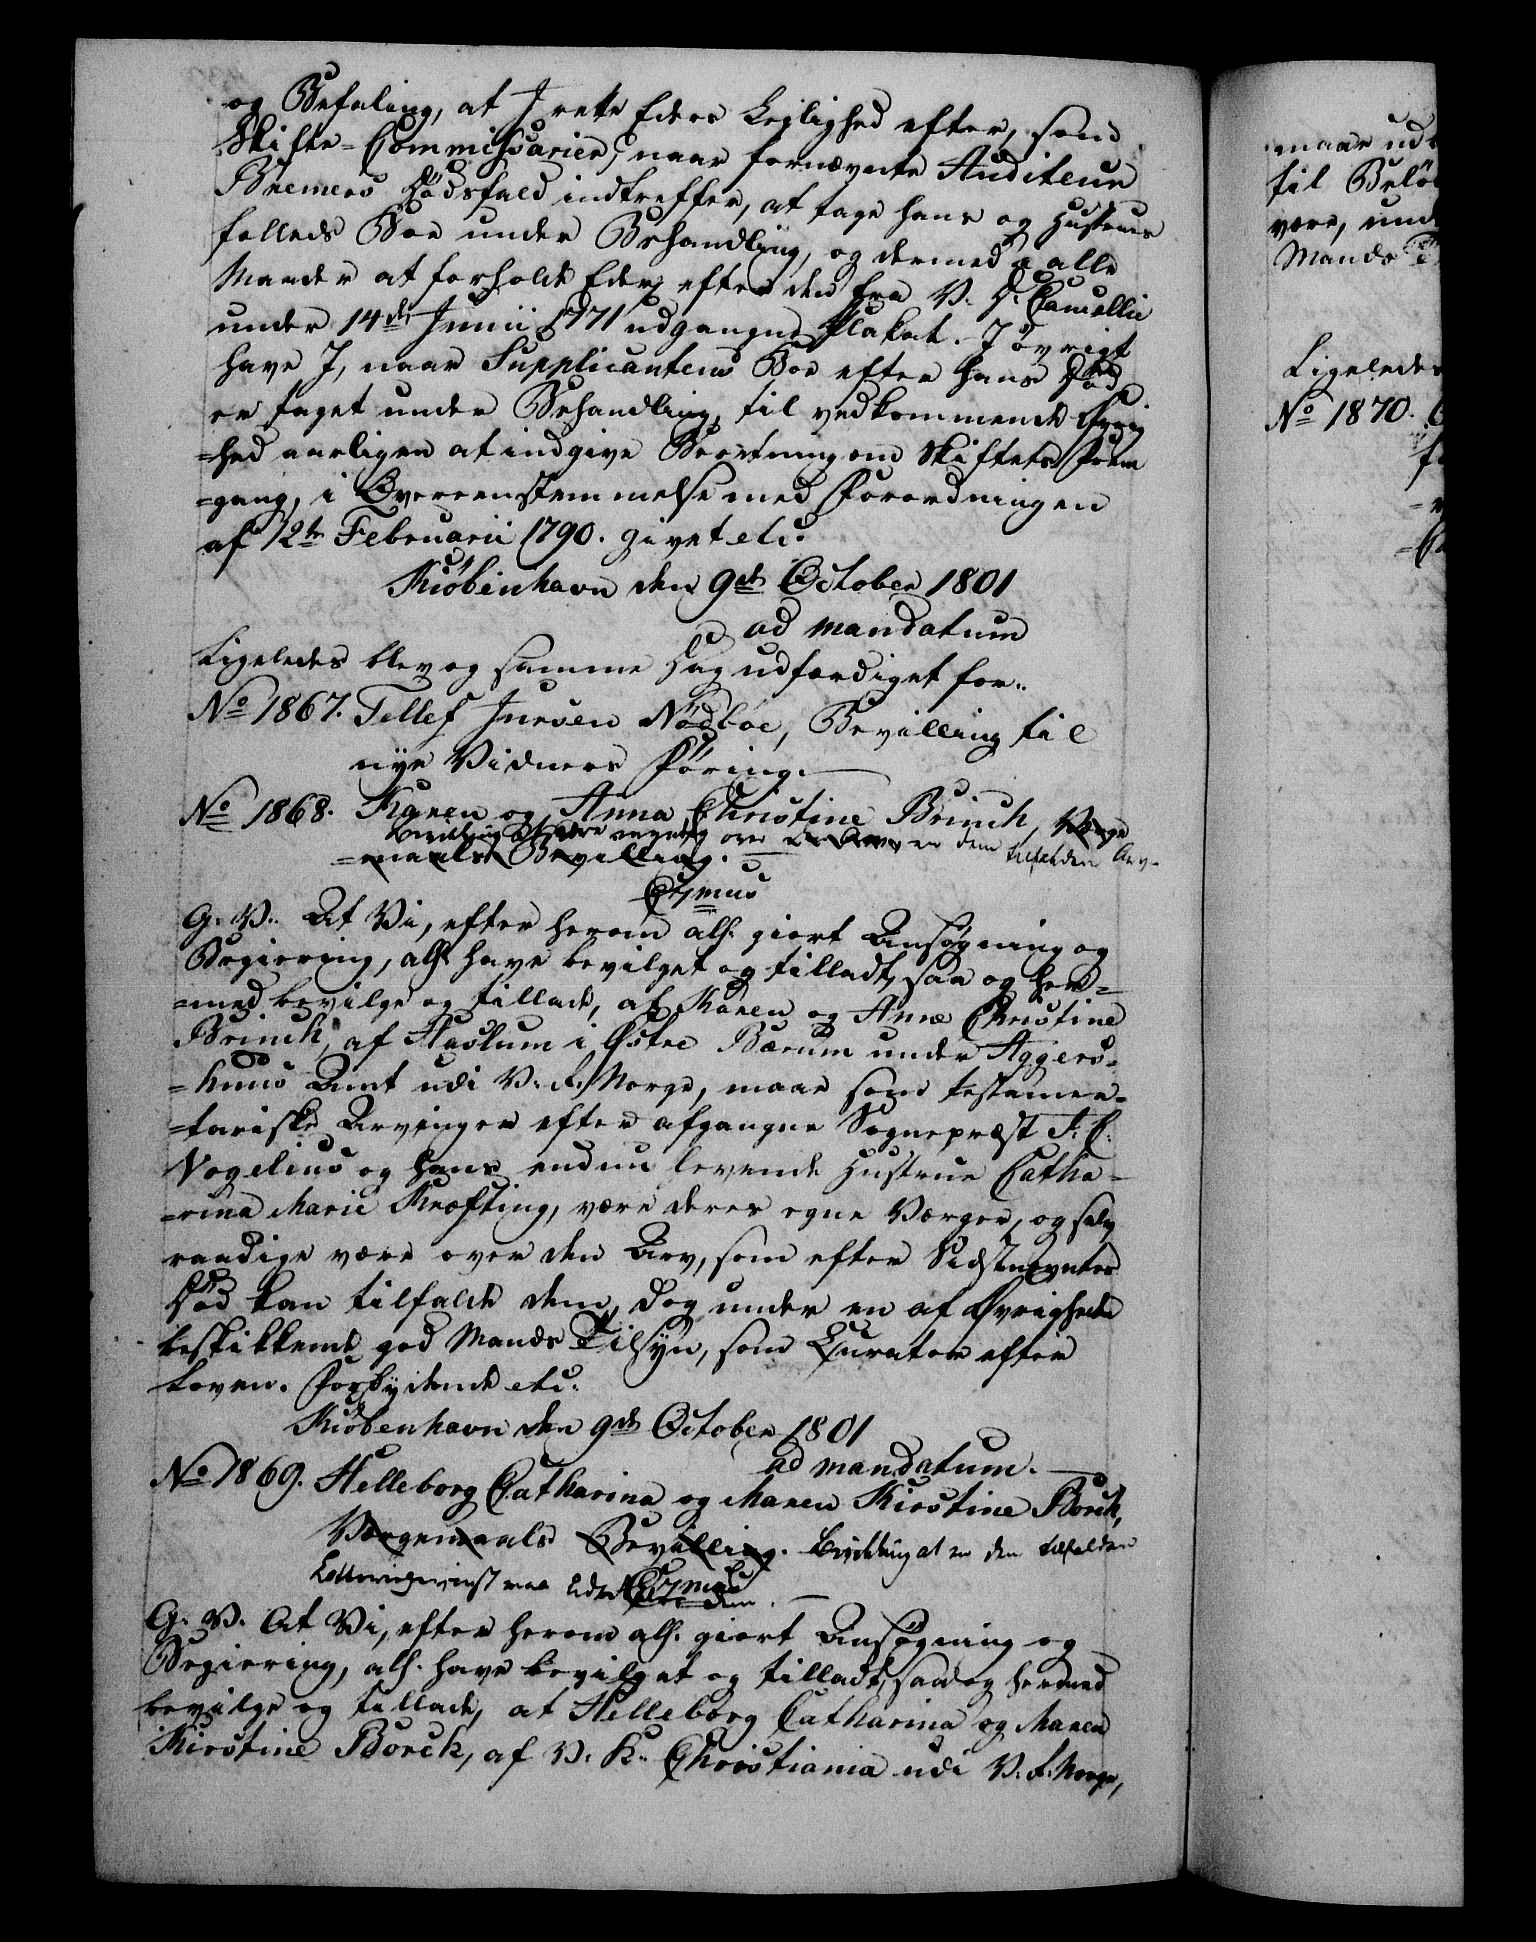 og Befaling, at I rette Eders Leylighed efter, som
Skifte-Commissarier, naar fornævnte Auditeur
Bremers Dödsfald indtreffer, at tage hans og Hustrues
fælleds Boe under Behandling, og dermed i alle
Maader at forholde Eder efter den fra V. D. Cancellie
under 14de Junii 1771 udgangne Plakat. I övrigt
have I, naar Supplicantens Boe efter hans Död
er taget under Behandling, til vedkommende Øvrig
=hed aarligen at indgive Beretning om Skiftets Frem
=gang, i Overeensstemmelse med Forordningen
af 12te Februarii 1790. givet etc.
Kiöbenhavn den 9de October 1801
ad mandatum
Ligeledes blev og samme Dag udfærdiget for..
No 1867. Tellef Jursen Nödböe, Bevilling til
nye Vidners Föring.
No 1868. Karen og Anna Christine Brinch, Værge
Bevilling at være myndig over en dem tilfalden Arv-
=maals Bevilling.
G. V.. At Vi, efter herom all. giort Ansøgning og
Begiering, all. have bevilget og tilladt, saa og her=
=med bevilge og tillade, at Karen og Anne Christine
Brinch, af Haslum i Østre Bærum under Aggers-
=huus Amt udi V. R. Norge, maae som testamen=
=tariske Arvinger efter afgangne Sognepræst F. C.
Vogelius og hans endnu levende Hustrue Catha-
=rina Marie Kræfting, være deres egne Værger, og selv
raadige være over den Arv, som efter Sidstnævntes
Död kan tilfalde dem, dog under en af Øvrighede
beskikkende god Mands Tilsyn, som Curator efter
Loven. Forbydende etc.
Kiöbenhavn den 9de October 1801
ad mandatum.
No 1869. Helleborg Catharina og Maren Kirstine Borch,
Værgemaals Bevilling. Bevilling at en dem tilfalden
Lotteriegevinst maa dem.
G. V. At Vi, efter herom all. giort Ansøgning og
Begiering, all. have bevilget og tilladt, saa og hermed
bevilge og tillade, at Helleborg Catharina og Maren
Kirstine Borck, af V. K. Christiania udi V. R. Norge,
maar ud
til
være, und
Mands
Ligeledes
No 1870.